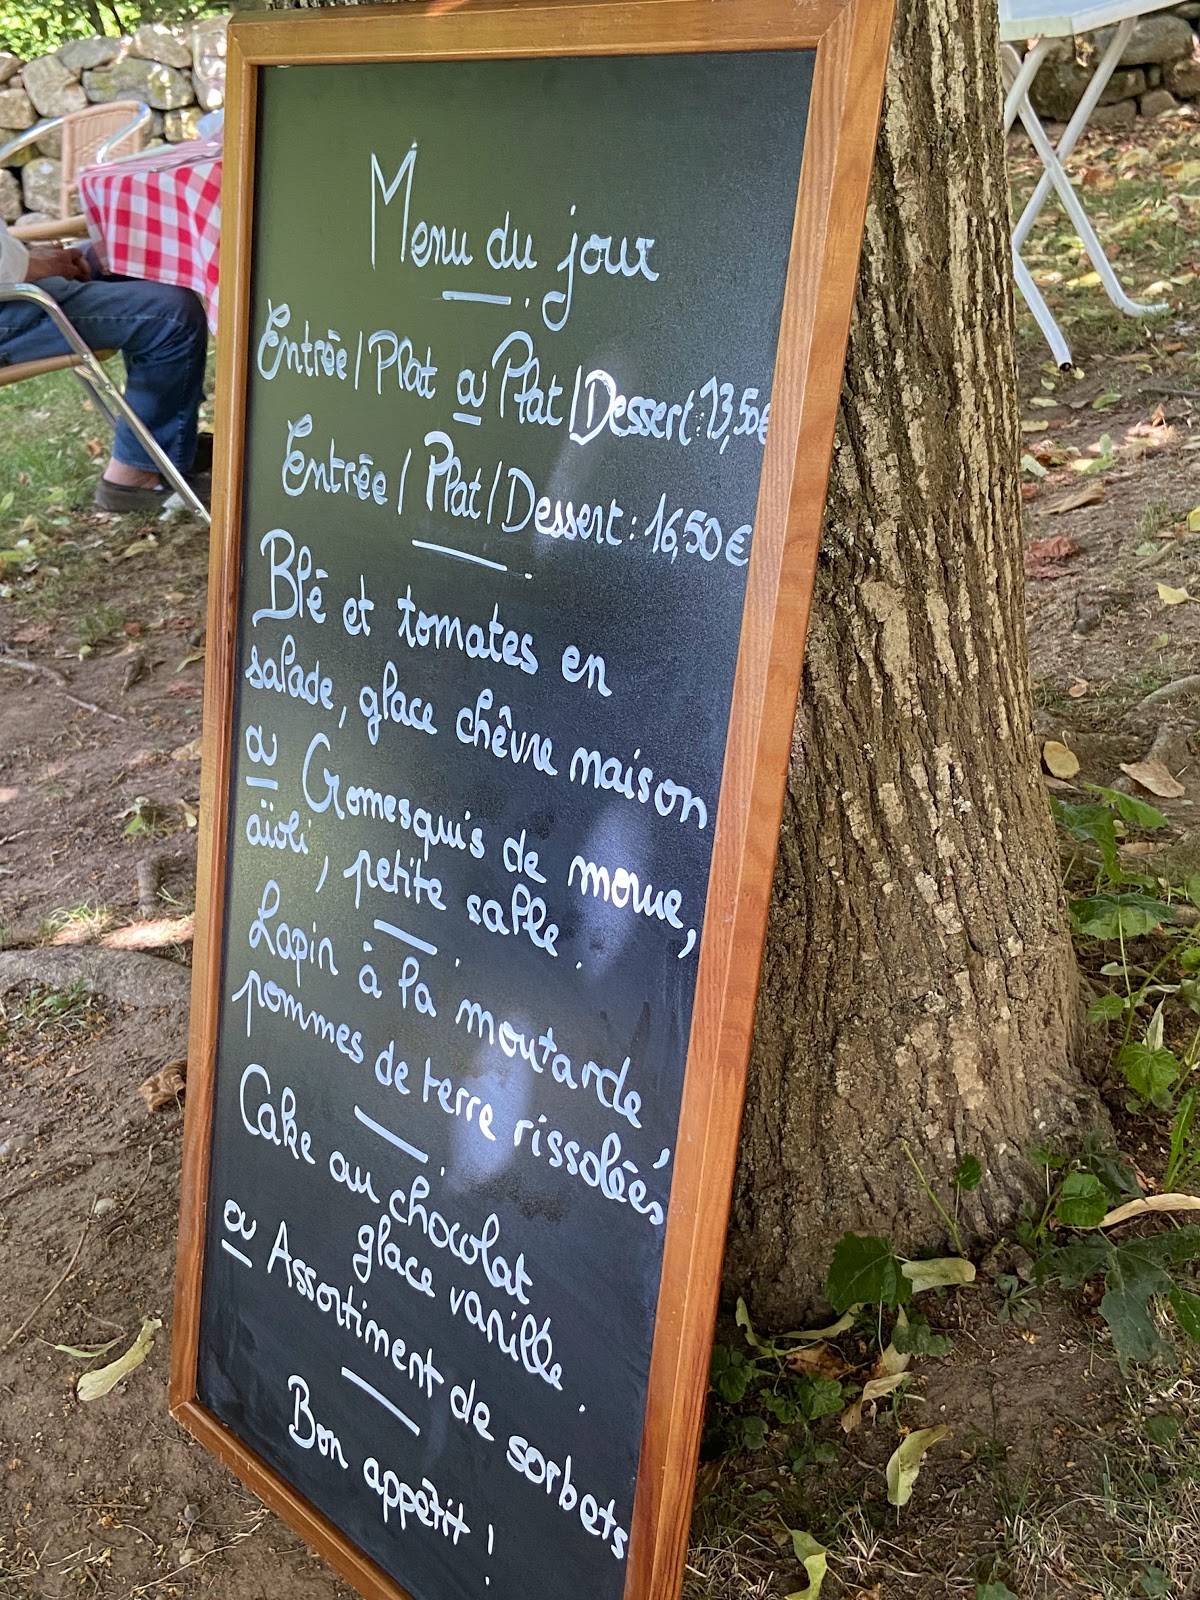 Menu du jour
Entrée / Plat ou Plat / Dessert : 13,50€
Entrée / Plat / Dessert : 16,50€
Blé et tomates en
salade, glace chêvre maison
ou Cromesquis de morue,
aïoli, petite salle.
Lapin à la moutarde,
pommes de terre rissolées
Cake au chocolat
glace vanille.
ou Assortiment de sorbets
Bon appétit !